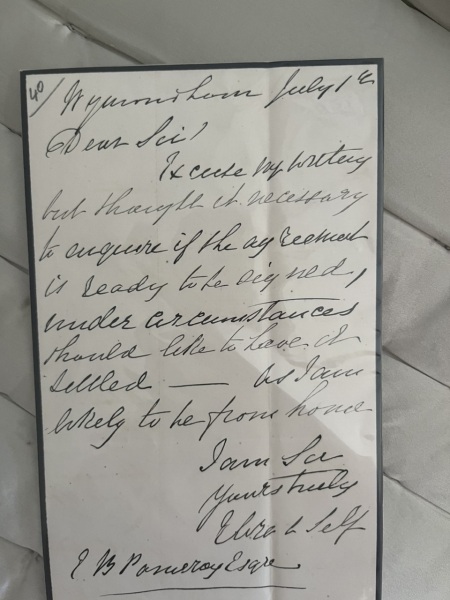 40/
Wymondham July 1st
Dear Sir/
Excuse my writing
but thought it necessary
to enquire if the agreement
is ready to be signed,
under circumstances
should like to have it
settled — as I am
likely to be from home
I am Sir
Yours truly
Self
E B Pomeroy Esqre